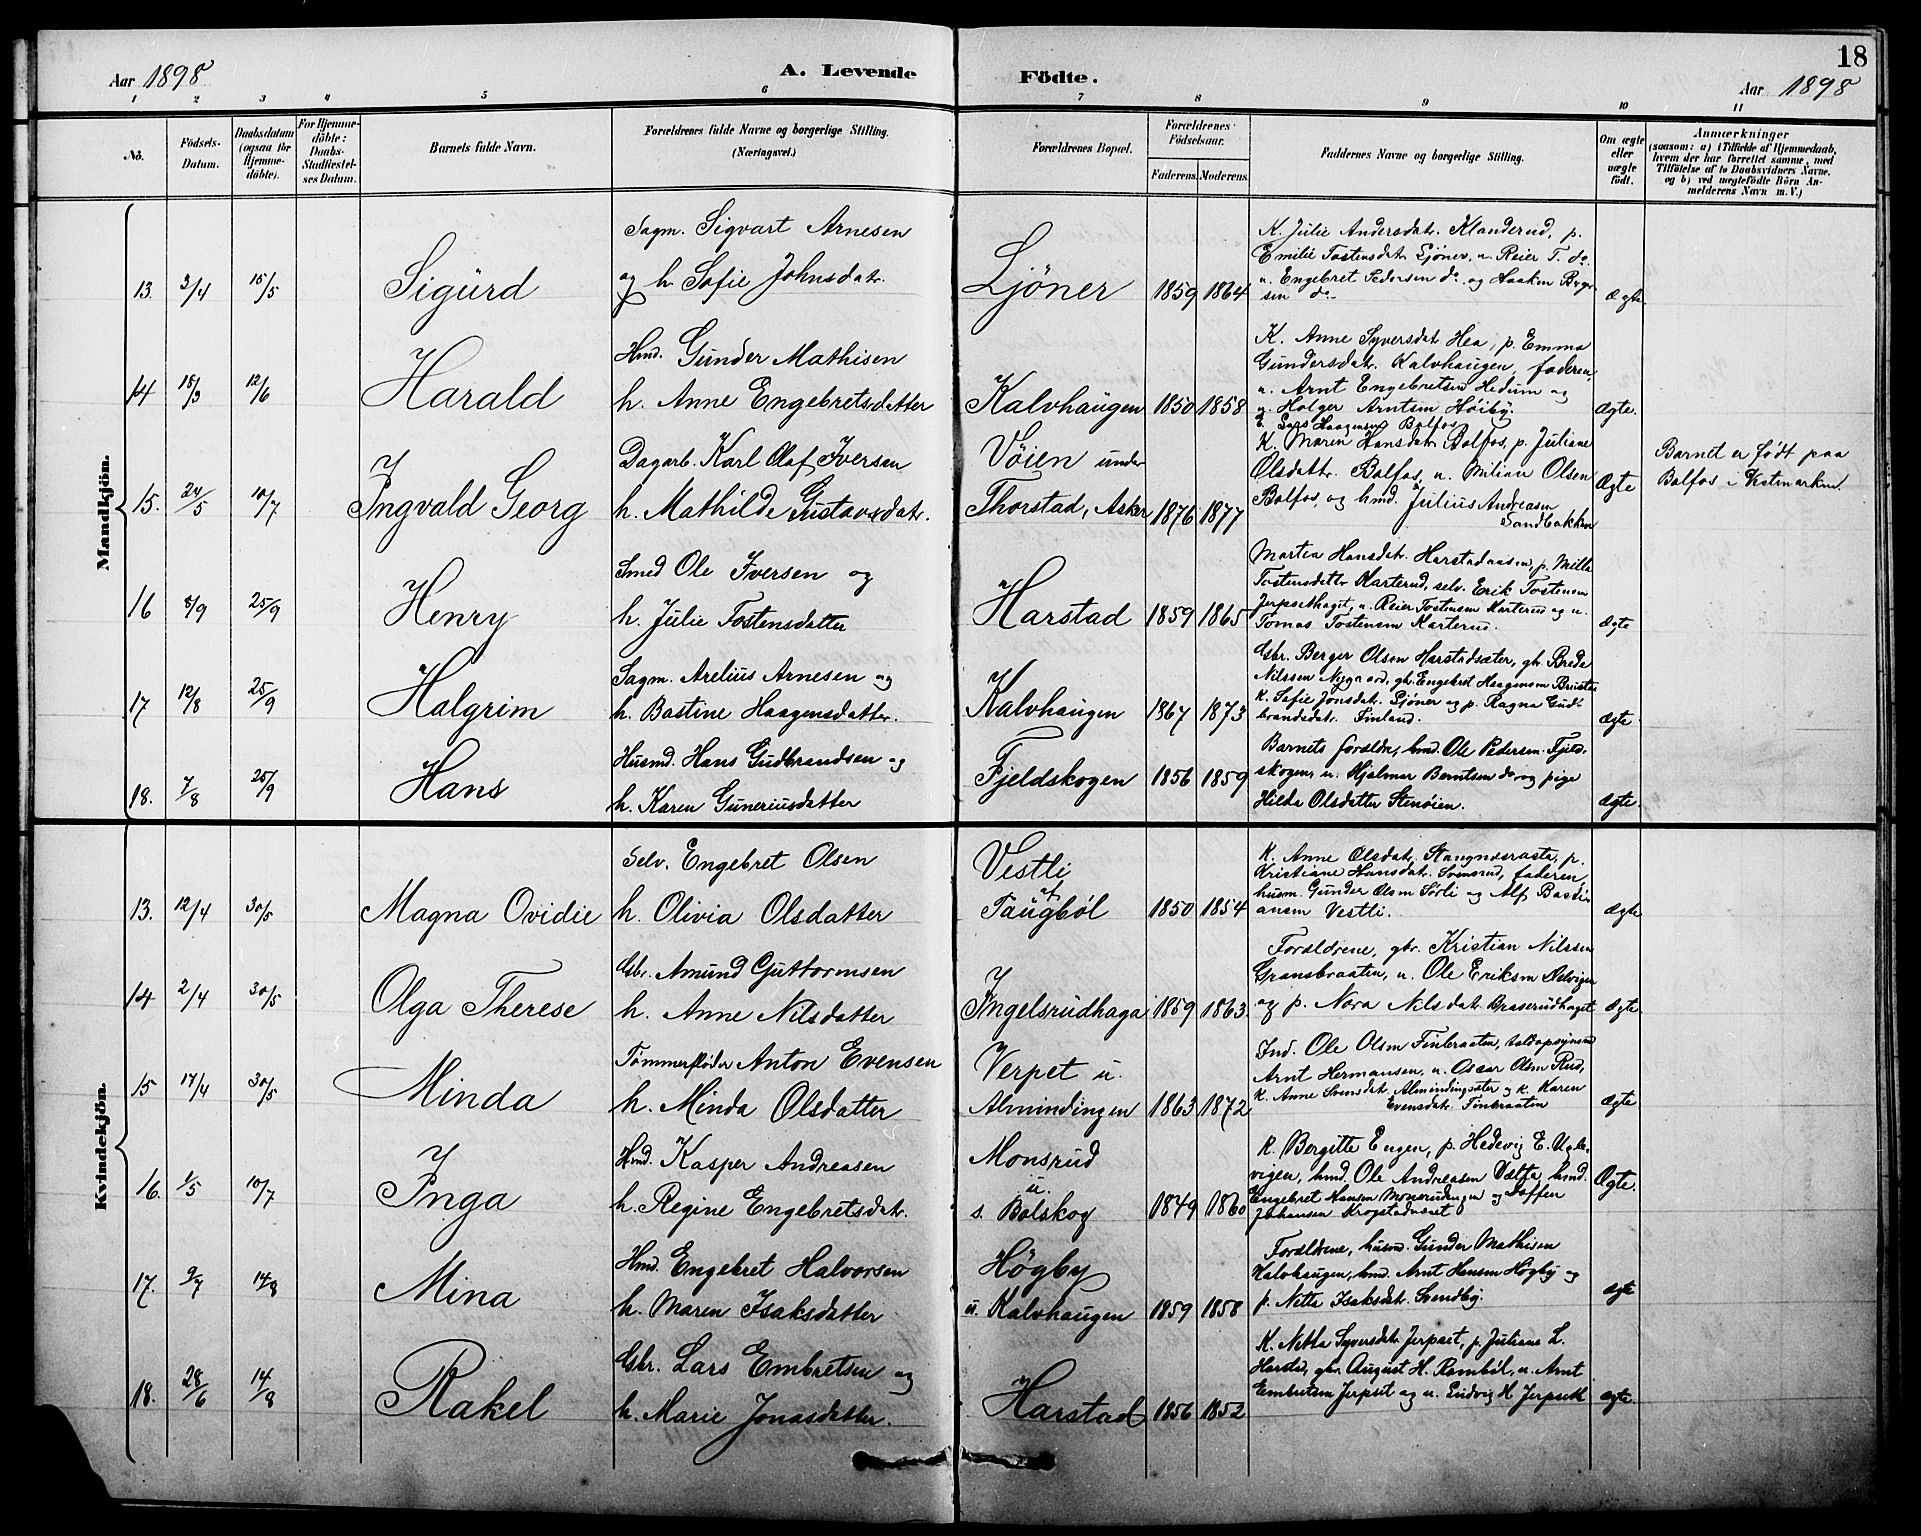 18
Aar 1898
A. Levende
Födte.
Aar 1898
1 2 3 4 5 6 7 8 9 10 11
No.
Födsels-
Datum.
Daabsdatum
(ogsaa for
Hjemme-
döbte).
For Hjemme-
döbte:
Daabs-
Stadfæstel-
ses Datum.
Barnets fulde Navn.
Forældrenes fulde Navne og borgerlige Stilling.
(Næringsvei.)
Forældrenes Bopæl.
Forældrenes
Födselsaar.
Faderens. Moderens.
Faddernes Navne og borgerlige Stilling.
Om ægte
eller
uægte
født.
Anmærkninger
(saasom: a) i Tilfælde af Hjemmedaab,
hvem der har forrettet samme, med
Tilföielse af to Daabsvidners Navne,
og b) ved uægtefödte Börn An-
melderens Navn m. V.)
Mandkjön.
13. 3/4 15/5 Sigurd
Sagm. Sigvart Arnesen
og h. Sofie Johnsdatr.
Ljöner 1859 1864
K. Julie Andersdatr. Klanderud, p.
Emilie Tostensdatr. Ljöner, u. Reier T. do
u. Engebret Pedersen do og Haaken
sen do
Ægte
14 18/3 12/6 Harald
Hmd. Gunder Mathisen
h. Anne Engebretsdatter
Kalvhaugen 1850 1858
K. Anne Syversdatr. Hea, p. Emma
Gundersdatr. Kalvhaugen, faderen,
u. Arnt Engebretsen Hedum og
u. Holger Arntsen Höiby.
Ægte.
15. 24/5 10/7 Ingvald Georg
Dagarb. Karl Olaf Iversen
h. Mathilde Gustavsdatr.
Vöien under
Thorstad, Asker 1876 1877
Lars Haagensen Bolfos
K. Maren Hansdatr. Bolfos, p. Juliane
Olsdattr. Bolfos, u. Milian Olsen
Bolfos, og hmd. Julius Andreasen
Sandbakken
Ægte
Barnet er født paa
Bolfos i Vestmarken.
16 8/9 25/9 Henry
Smed Ole Iversen og
h. Julie Tostensdatter
Harstad 1859 1865
Martea Hansdatr. Harstadaasen, p. Milla
Tostensdattr Karterud, selv. Erik Tostensen
Jerpsethaget, u. Reier Tostensen Karterud og u.
Tomas Tostensen Karterud.
Ægte
17 12/8 25/9 Halgrim
Sagm. Arelius Arnesen og
h. Bastine Haagensdatter.
Kalvhaugen 1867 1873
Gbr. Berger Olsen Harstadsæter, gbr. Brede
Nilssen Nygaard, gbr. Engebret Haagensen
k. Sofie Jonsdatr. Ljöner og p. Ragna Gud-
brandsdatr. Finland.
Ægte
18. 7/8 25/9 Hans
Husmd. Hans Gudbrandsen og
h. Karen Guneriusdatter
Fjeldskogen 1856 1859
Barnets forældre, hmd. Ole Pedersen Fjeld-
skogen, u. Hjalmar Berntsen do og pige
Hilda Olsdatter Stenöien.
Ægte.
Kvindekjön.
13. 12/4 30/5 Magna Ovidie
Selv. Engebret Olsen
h. Olivia Olsdatter
Vestli
af
Taugböl 1850 1854
K. Anne Olsdatr. Stangnæsrasta, p.
Kristiane Hansdatr. Svensrud, faderen
husm. Gunder Olsen Sörli og Alf Basti-
ansen Vestli.
Ægte
14 2/4 30/5 Olga Therese
Gbr. Amund Guttormsen
h. Anne Nilsdatter
Ingelsrudhaga 1859 1863.
Forældrene, gbr. Kristian Nilssen
Gransbraaten, u. Ole Eriksen
og p. Nora Nilsdatr. Braserudhaget
Ægte
15 17/4 30/5 Minda
Tømmerfløder Anton Evensen
h. Minda Olsdatter
Verpet u.
Almindingen 1863 1872
Ind. Ole Olsen Finbraaten, toldopsynsmd
Arnt Hermansen, u. Oscar Olsen Rud,
k. Anne Svensdatr. Almindingsæter og k. Karen
Evensdatr. Finbraaten
Ægte
16. 1/5 10/7 Inga
Hmd. Kasper Andreasen
h. Regine Engebretsdatr.
Monsrud
u.
s. Bölskog 1849 1860
K. Bergitte Engen, p. Hedevig E. Ugle-
vigen, hmd. Ole Andreasen Vælta, hmd.
Engebret Hansen Monsrudengen og Doffen
Johansen Krogstad
Ægte.
17. 9/7 14/8 Mina
Hmd. Engebret Halvorsen
h. Maren Isaksdatter
Högby
u. Kalvhaugen 1859 1858
Forældrene, husmd. Gunder Mathisen
Kalvhaugen, hmd. Arnt Hansen Högby og
p. Netta Isaksdatr. Svendby.
Ægte
18. 28/6 14/8 Rakel
Gbr. Lars Embretsen og
h. Marie Jonasdatter.
Harstad 1856 1852
K. Netta Syversdatr Jerpset, p. Juliane L.
Harstad, gbr. August H. Romböl, u. Arnt
Embretsen Jerpset og u. Ludvig H Jerpseth
Ægte